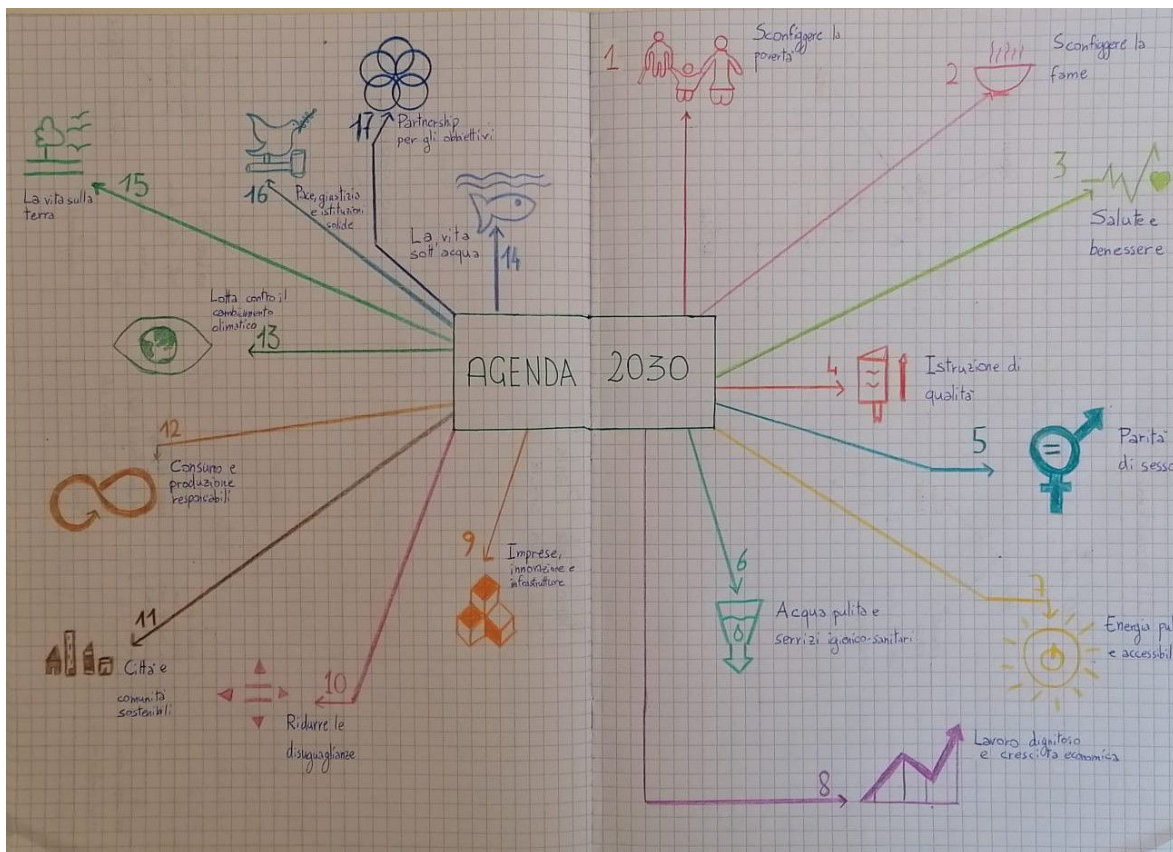 AGENDA 2030
1
Sconfiggere la
povertà
2
Sconfiggere la
fame
3
Salute e
benessere
4
Istruzione di
qualità
5
Parità
di sesso
6
Acqua pulita e
servizi igienico-sanitari
7
Energia pu
e accessibil
8
Lavoro dignitoso
e crescita economica
9
Imprese,
innovazione e
infrastrutture
10
Ridurre le
disuguaglianze
11
Città e
comunità
sostenibili
12
Consumo e
produzione
responsabili
13
Lotta contro il
cambiamento
climatico
14
La vita
sott'acqua
15
La vita sulla
terra
16
Pace, giustizia
e istituzioni
solide
17
Partnership
per gli obbiettivi